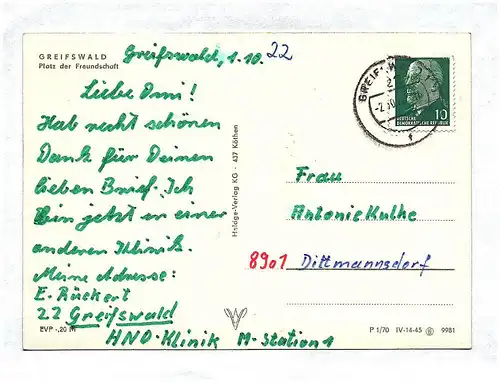 GREIFSWALD
Platz der Freundschaft
Greifswald, 1.10. 22
Liebe Omi!
Hab recht schönen
Dank für Deinen
lieben Brief. Ich
bin jetzt in einer
anderen Klinik.
Meine Adresse:
E. Rückert
22 Greifswald
HNO-Klinik M-Station 1
EVP -,20 M
Verlag KG · 437 Köthen
GREIFSW
DEUTSCHE
DEMOKRATISCHE REPUBLIK
10
Frau
Antonie Kuthe
8901 Dittmannsdorf
P 1/70 IV-14-45 9981